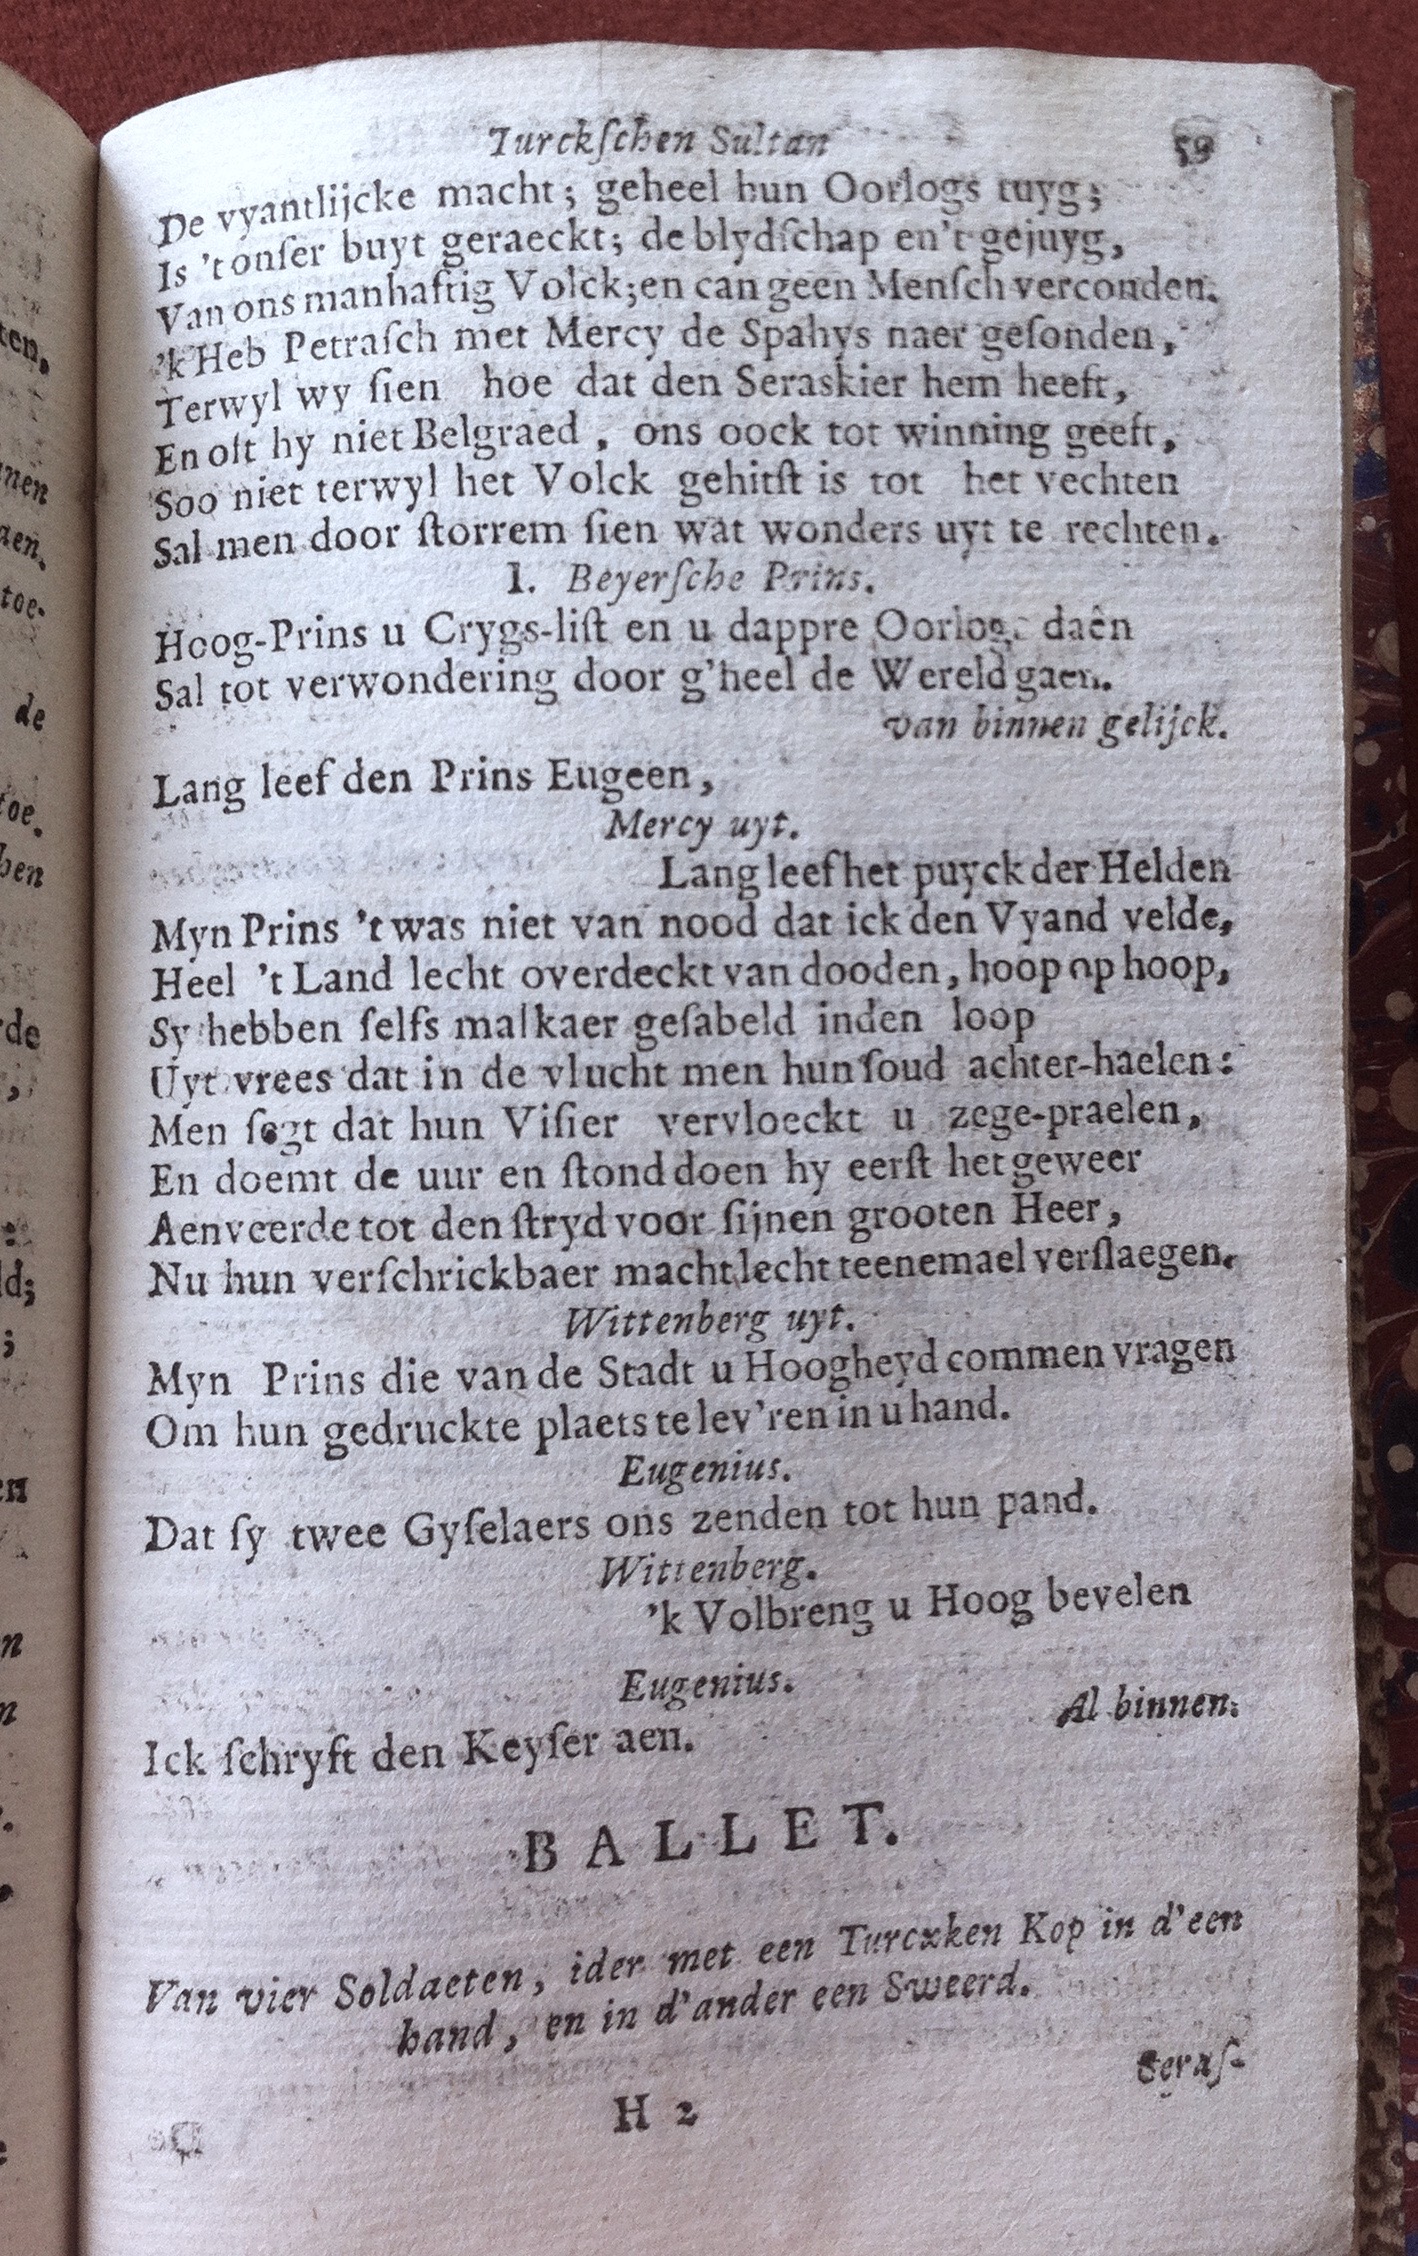 Turckſchen Sultan 59
De vyantlijcke macht; geheel hun Oorlogs tuyg;
Is 't onſer buyt geraeckt; de blydſchap en't gejuyg,
Van ons manhaftig Volck; en can geen Menſch verconden.
'k Heb Petraſch met Mercy de Spahys naer geſonden,
Terwyl wy ſien hoe dat den Seraskier hem heeft,
En oft hy niet Belgraed, ons oock tot winning geeft,
Soo niet terwyl het Volck gehitſt is tot het vechten
Sal men door ſtorrem ſien wat wonders uyt te rechten.
1. Beyerſche Prins.
Hoog-Prins u Crygs-liſt en u dappre Oorlogs daên
Sal tot verwondering door g'heel de Wereld gaen.
van binnen gelijck.
Lang leef den Prins Eugeen,
Mercy uyt.
Lang leef het puyck der Helden
Myn Prins 't was niet van nood dat ick den Vyand velde,
Heel 't Land lecht overdeckt van dooden, hoop op hoop,
Sy hebben ſelfs malkaer geſabeld inden loop
Uyt vrees dat in de vlucht men hun ſoud achter-haelen:
Men ſegt dat hun Viſier vervloeckt u zege-praelen,
En doemt de uur en ſtond doen hy eerſt het geweer
Aenveerde tot den ſtryd voor ſijnen grooten Heer,
Nu hun verſchrickbaer macht lecht teenemael verſlaegen.
Wittenberg uyt.
Myn Prins die van de Stadt u Hoogheyd commen vragen
Om hun gedruckte plaets te lev'ren in u hand.
Eugenius.
Dat ſy twee Gyſelaers ons zenden tot hun pand.
Wittenberg.
'k Volbreng u Hoog bevelen
Eugenius.
Al binnen.
Ick ſchryft den Keyſer aen.
BALLET.
Van vier Soldaeten, ider met een Turcxken Kop in d'een
hand, en in d'ander een Sweerd.
Seraſ-
H 2